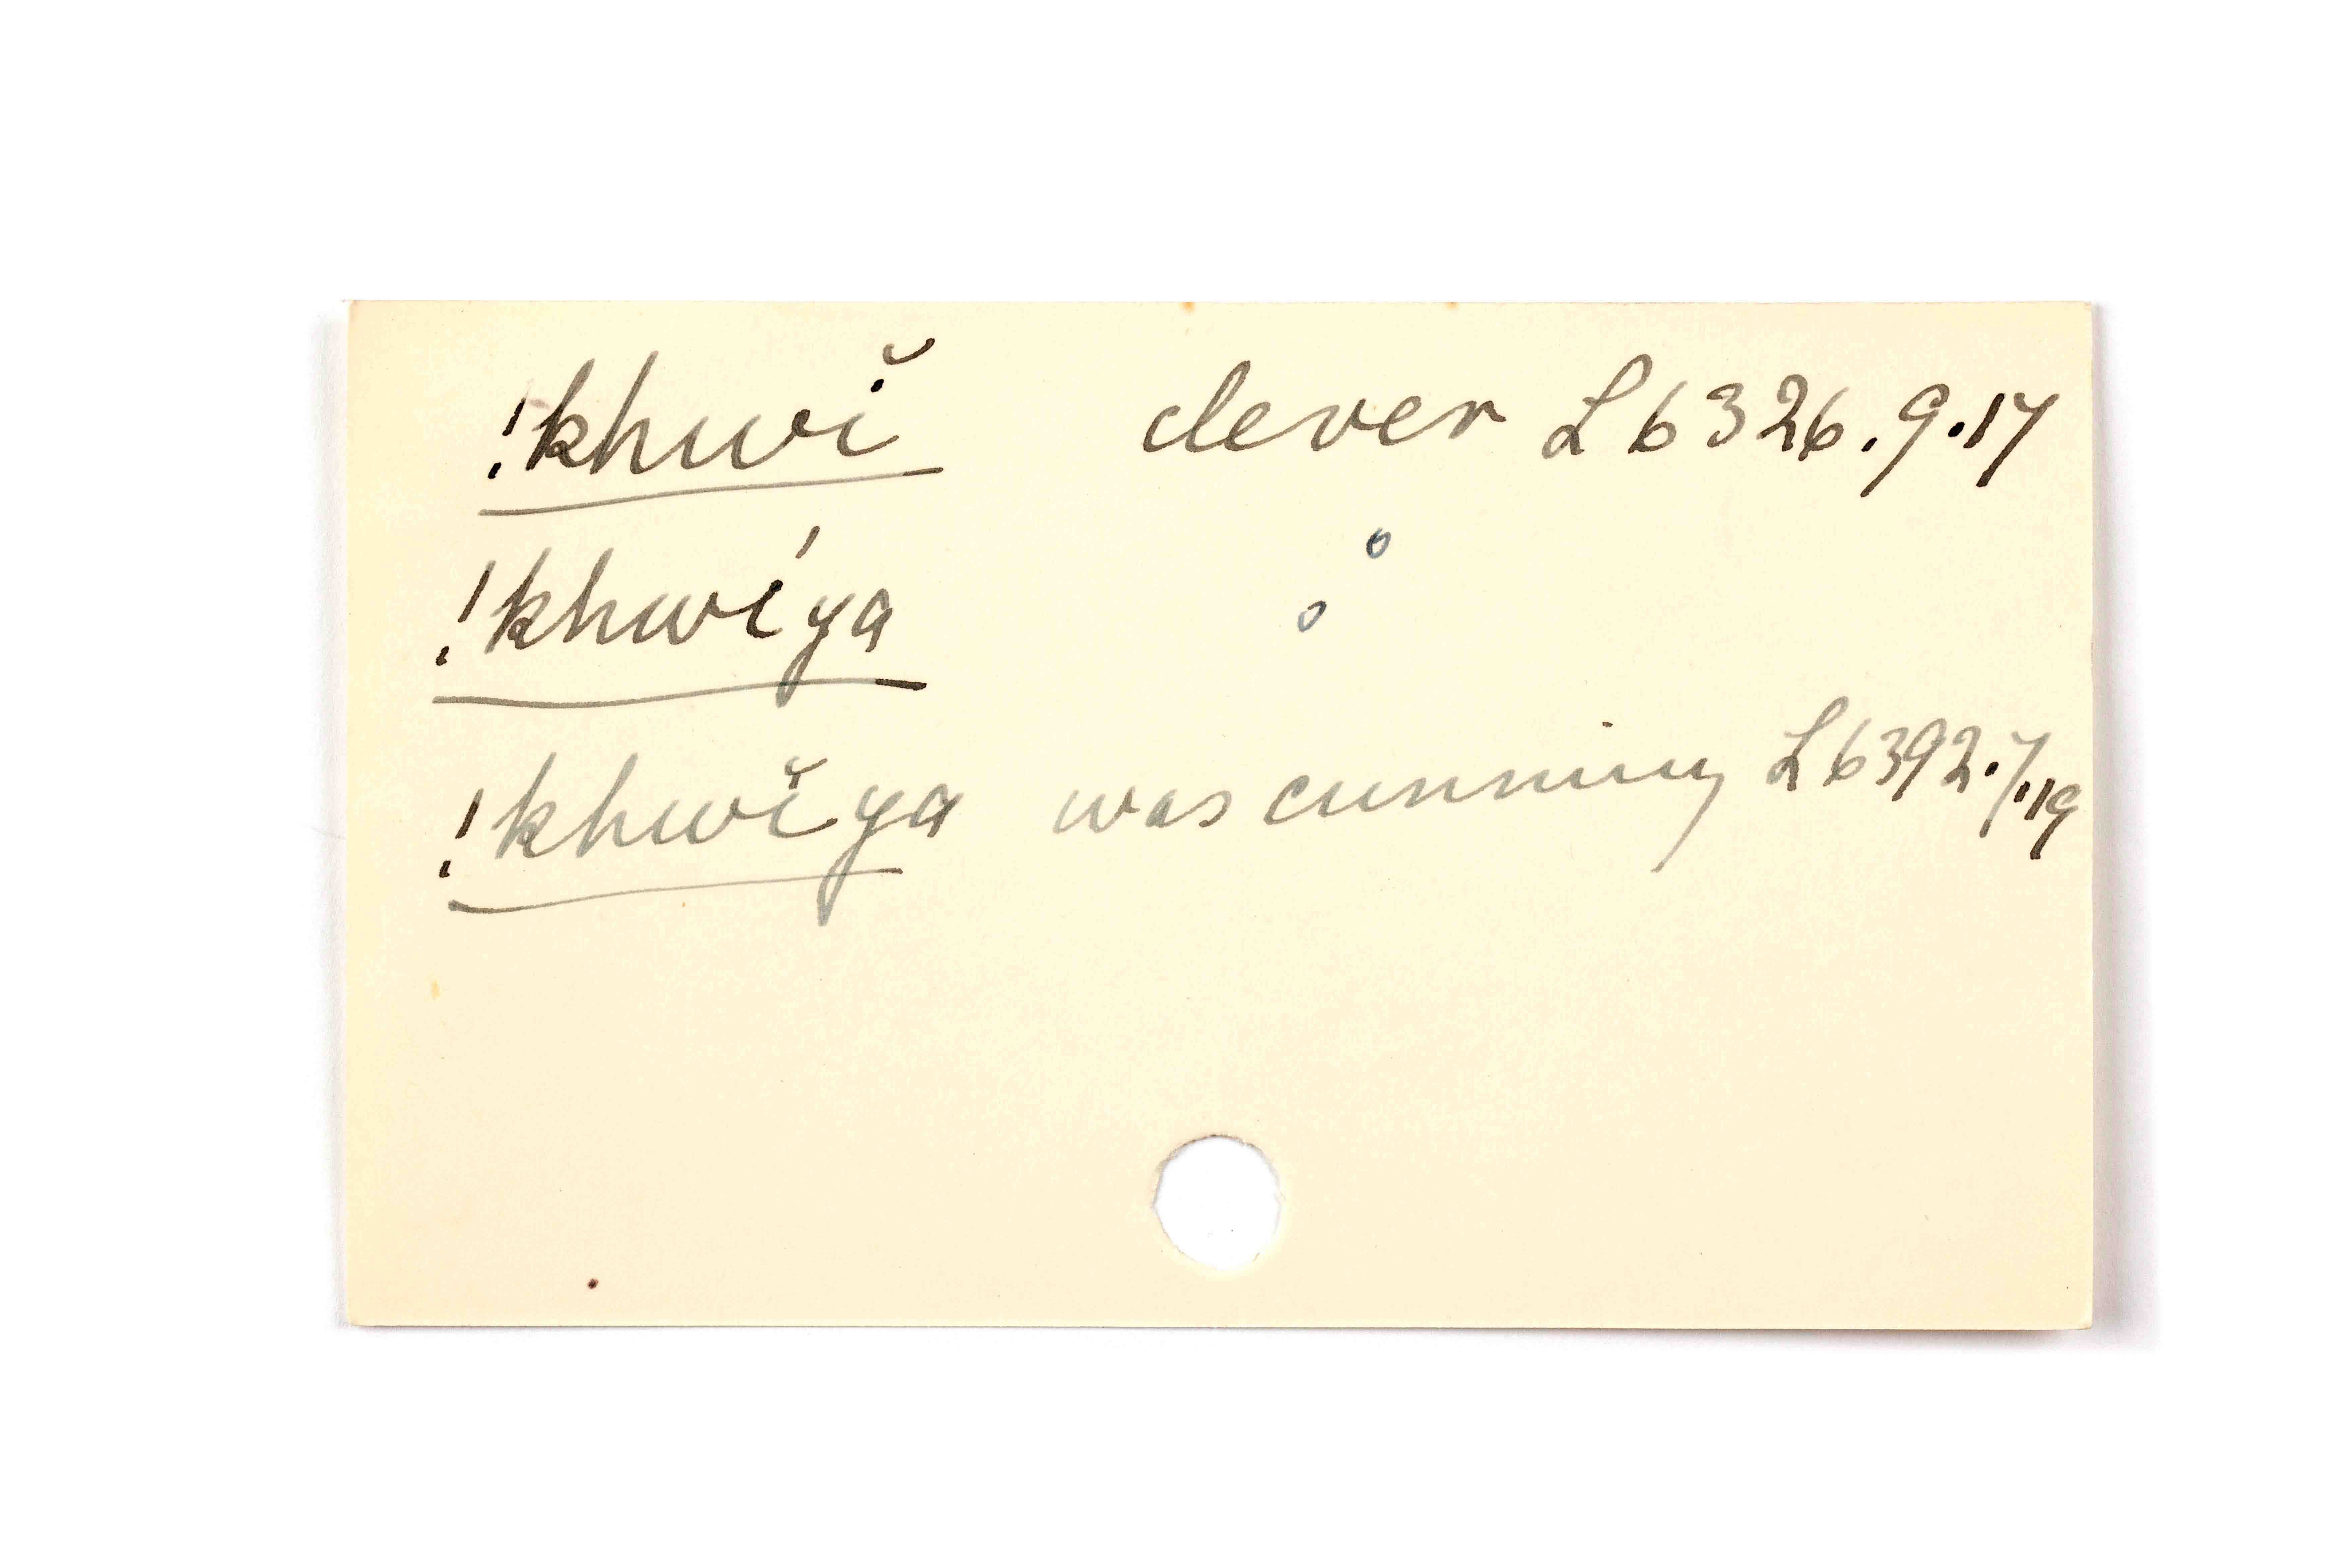 !khwĭ clever L 6326.9.17
!khwíya o o
!khwĭya was cunning L 6392.7.19